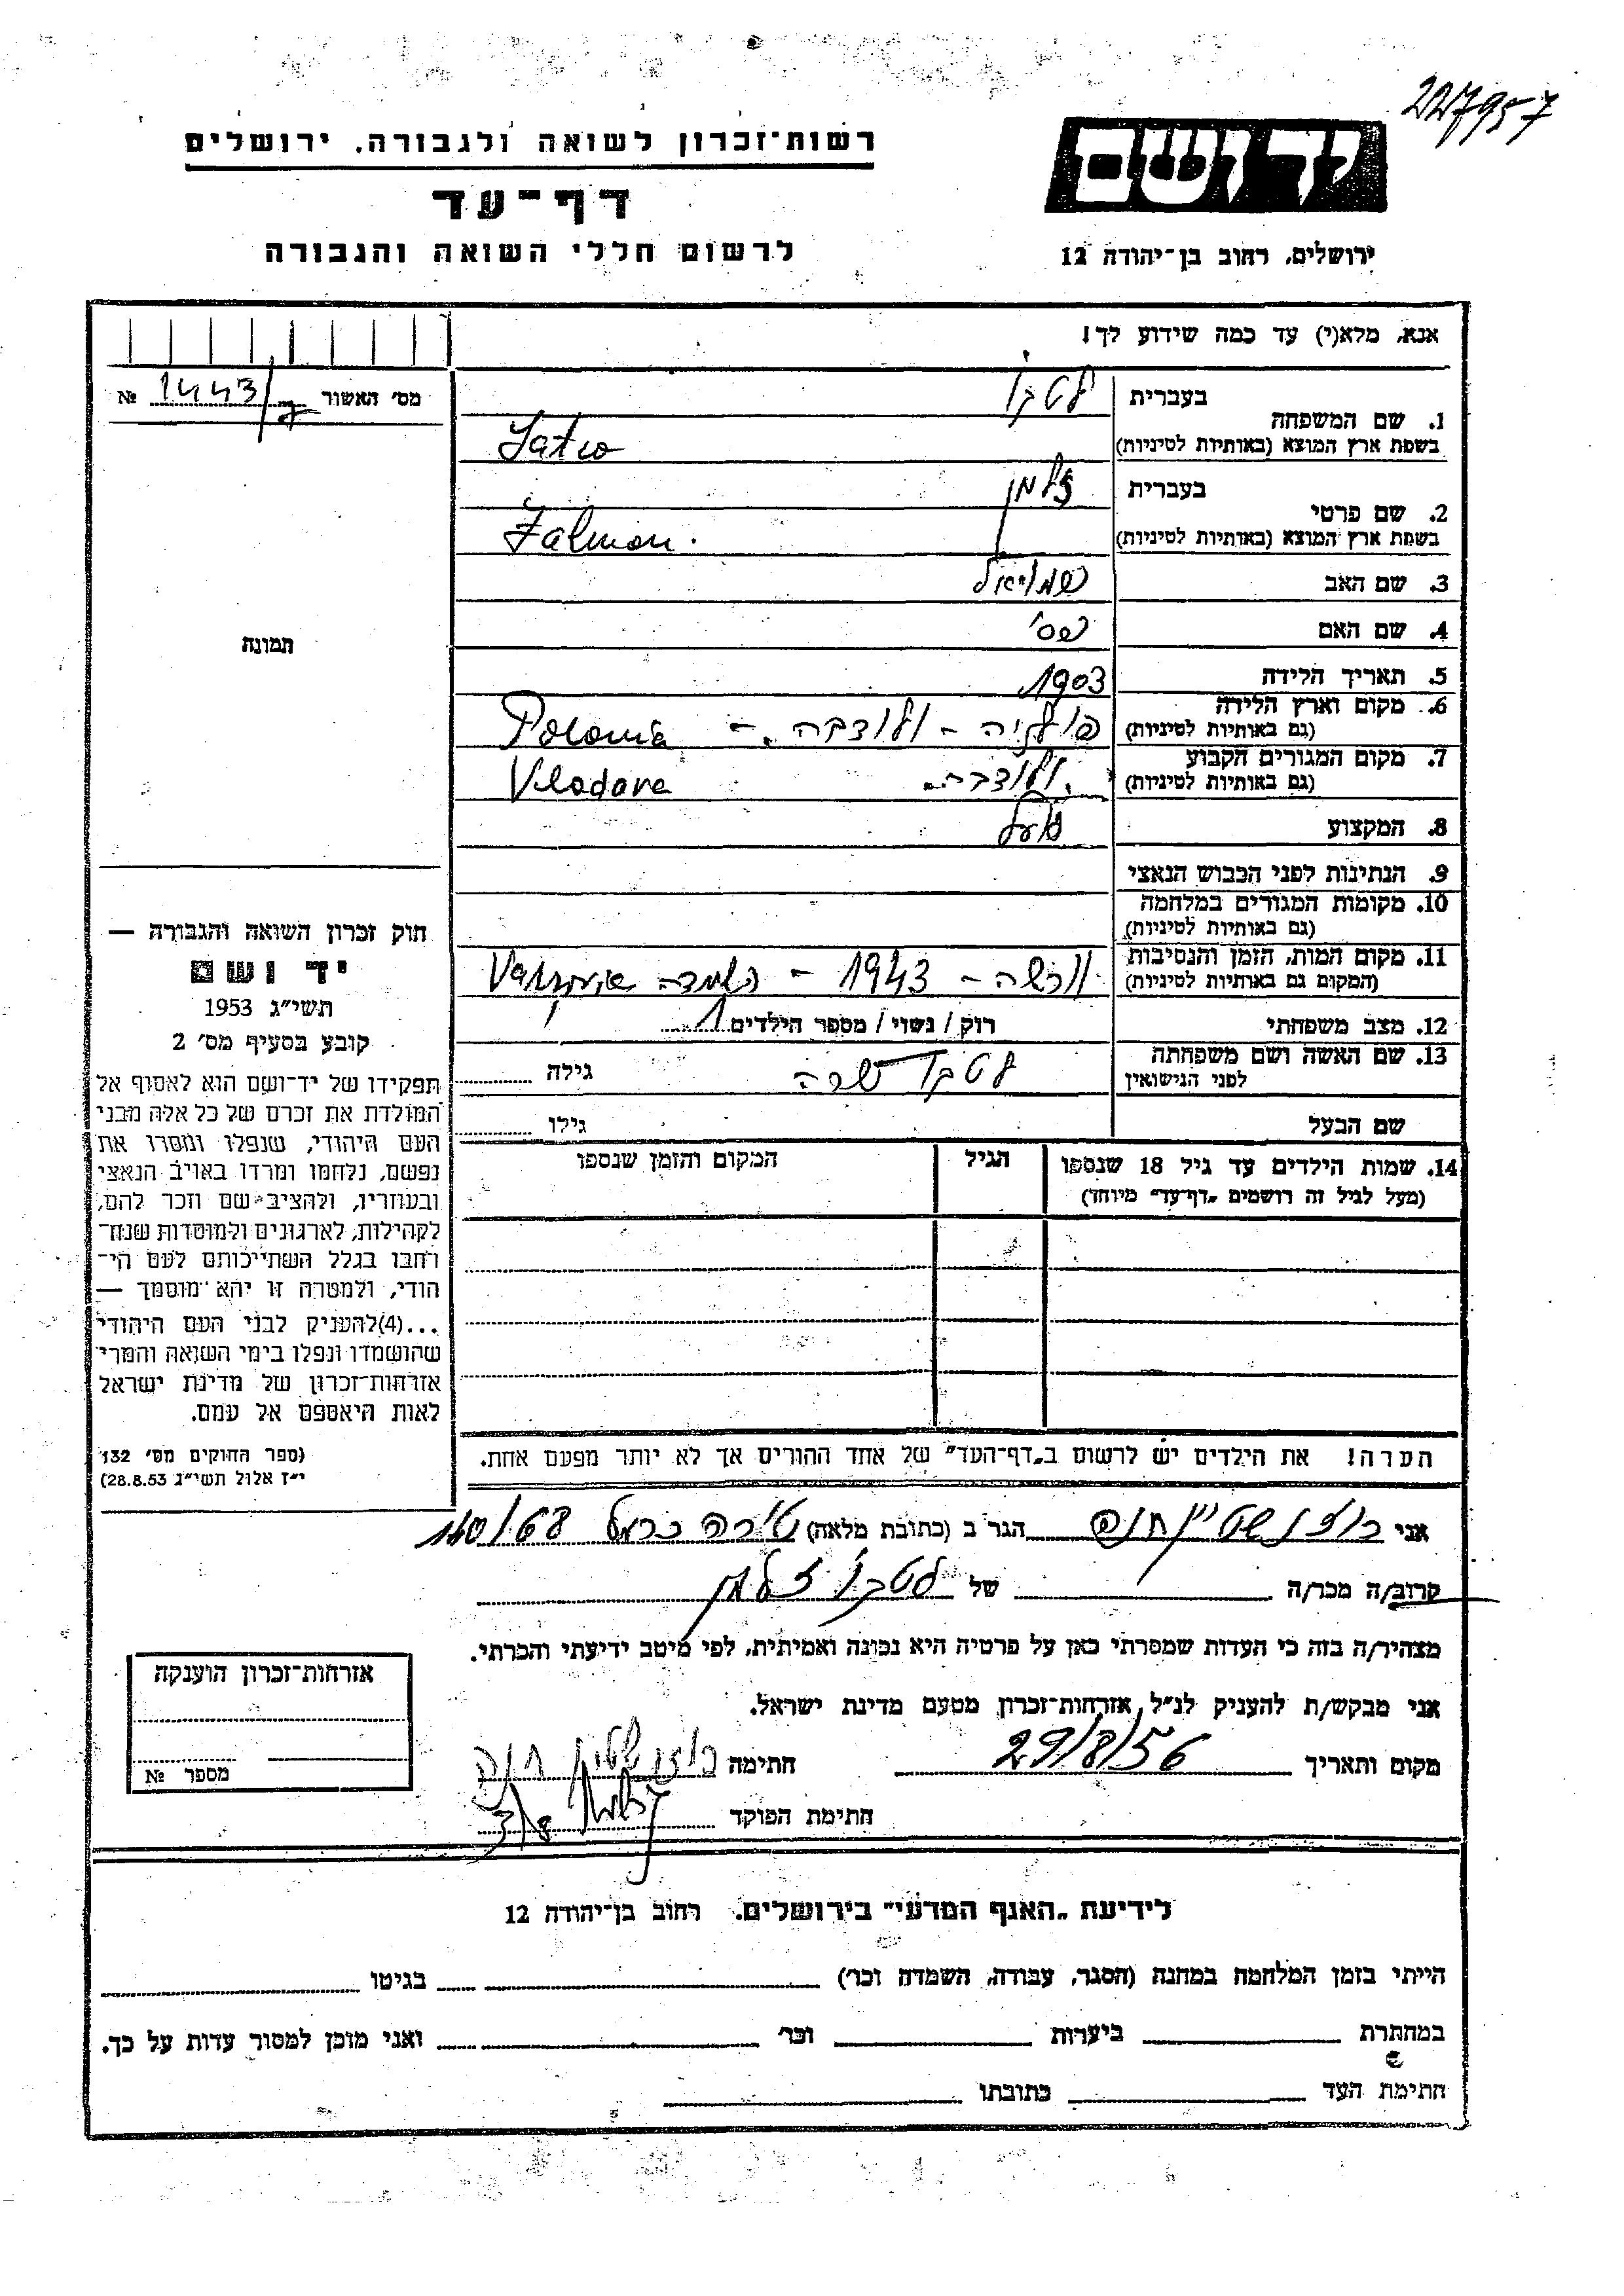 227957
רשות־זכרון לשואה ולגבורה, ירושלים
דף־עד
לרשום חללי השואה והגבורה
יד ושם
ירושלים, רחוב בן־יהודה 12
אנא, מלא(י) עד כמה שידוע לך!
מס' האשור 1443/ №
1. שם המשפחה
בעברית לטבו
בשפת ארץ המוצא (באותיות לטיניות)
2. שם פרטי
בעברית זלמן
בשפת ארץ המוצא (באותיות לטיניות) Zalman.
3. שם האב שמואל
4. שם האם
5. תאריך הלידה 1903
6. מקום וארץ הלידה
(גם באותיות לטיניות) פולניה - ולודבה. - Polonia
7. מקום המגורים הקבוע
(גם באותיות לטיניות) ולודבה. Vlodava
8. המקצוע פועל
9. הנתינות לפני הכבוש הנאצי
10. מקומות המגורים במלחמה
(גם באותיות לטיניות)
11. מקום המות, הזמן והנסיבות
(המקום גם באותיות לטיניות) ורשה - 1943 -
12. מצב משפחתי רוק / נשוי / מספר הילדים 1
13. שם האשה ושם משפחתה
לפני הנישואין לטבו שרה גילה
שם הבעל גילו
14. שמות הילדים עד גיל 18 שנספו הגיל המקום והזמן שנספו
(מעל לגיל זה רושמים „דף־עד״ מיוחד)
הערה! את הילדים יש לרשום ב„דף־העד״ של אחד ההורים אך לא יותר מפעם אחת.
תמונה
חוק זכרון השואה והגבורה —
יד ושם
תשי״ג 1953
קובע בסעיף מס׳ 2
תפקידו של יד־ושם הוא לאסוף אל
המולדת את זכרם של כל אלה מבני
העם היהודי, שנפלו ומסרו את
נפשם, נלחמו ומרדו באויב הנאצי
ובעוזריו, ולהציב־שם וזכר להם,
לקהילות, לארגונים ולמוסדות שנח־
רבו בגלל השתייכותם לעם הי־
הודי, ולמטרה זו יהא מוסמך —
...(4)להעניק לבני העם היהודי
שהושמדו ונפלו בימי השואה והמרי
אזרחות־זכרון של מדינת ישראל
לאות היאספם אל עמם.
(ספר החוקים מס׳ 132
י״ז אלול תשי״ג 28.8.53)
אני רוזנשטיין חנה הגר ב (כתובת מלאה) טירה כרמל 140/68
קרוב/ה מכר/ה של לטבו זלמן
מצהיר/ה בזה כי העדות שמסרתי כאן על פרטיה היא נכונה ואמיתית, לפי מיטב ידיעתי והכרתי.
אני מבקש/ת להעניק לנ״ל אזרחות־זכרון מטעם מדינת ישראל.
מקום ותאריך 29/8/56 חתימה רוזנשטיין חנה
חתימת הפוקד
אזרחות־זכרון הוענקה
מספר №
לידיעת „האגף המדעי״ בירושלים. רחוב בן־יהודה 12
הייתי בזמן המלחמה במחנה (הסגר, עבודה, השמדה וכר׳) בגיטו
במחתרת ביערות וכר׳ ואני מוכן למסור עדות על כך.
חתימת העד כתובתו